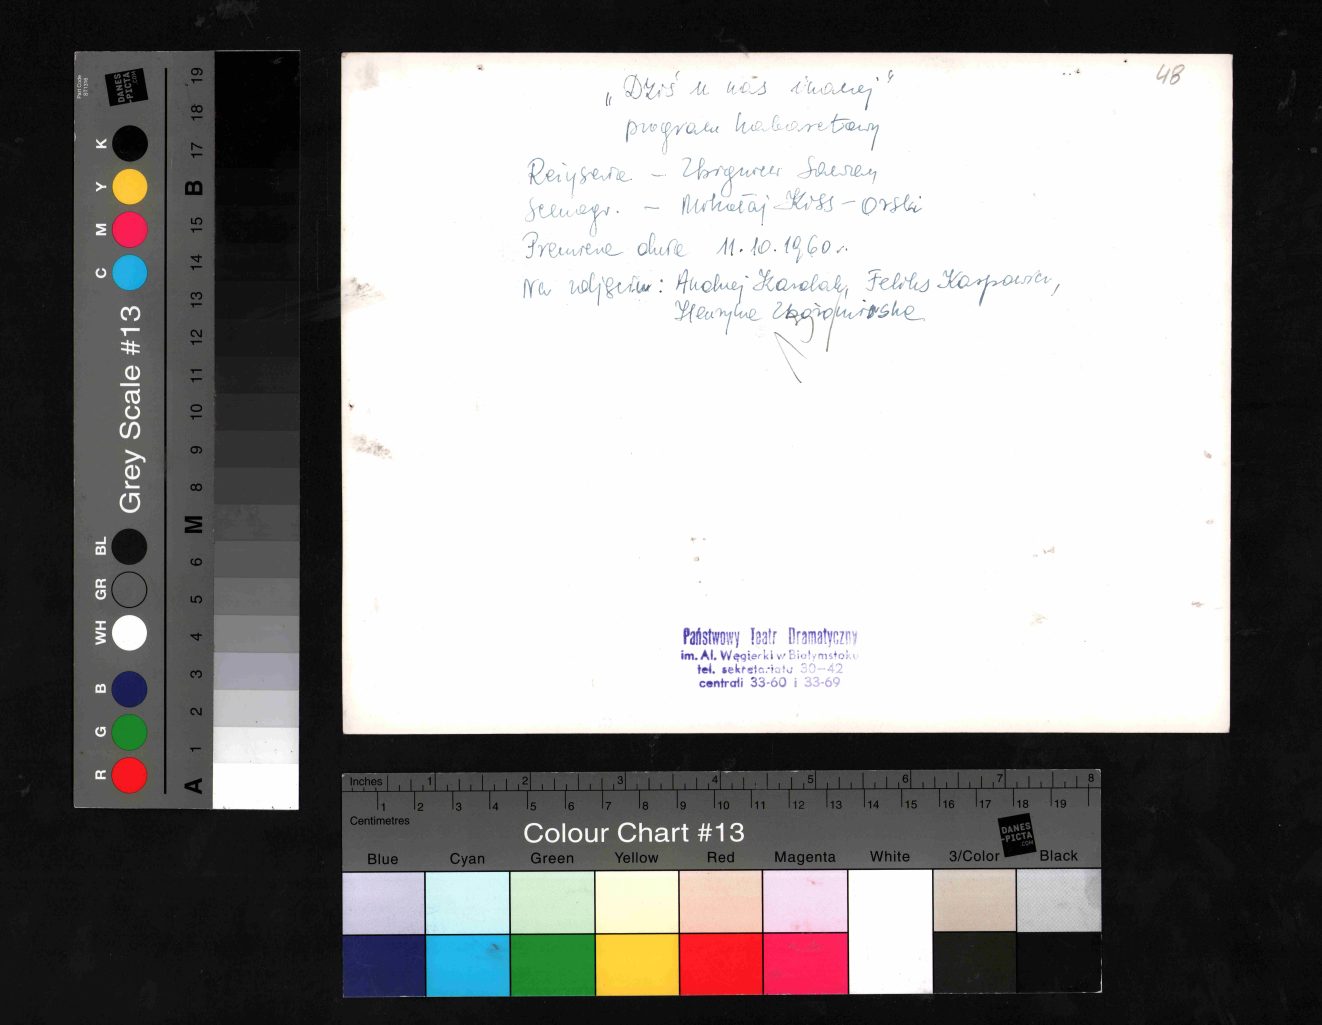 48
„Dziś u nas inaczej"
program kabaretowy
Reżyseria – Zbigniew Sawan
Scenogr. – Mikołaj Kiss-Orski
Premiera dnia 11.10.1960 r.
Na zdjęciu: Andrzej Karolak, Feliks Karpowicz,
Henryka
Państwowy Teatr Dramatyczny
im. Al. Węgierki w Białymstoku
tel. sekretariatu 30–42
centrali 33-60 i 33-69
Grey Scale #13
DANES
-PICTA
.COM
Part Code
K Y M C
BL GR WH
B G R
A 1 2 3 4 5 6 M 8 9 10 11 12 13 14 15 B 17 18 19
Inches 1 2 3 4 5 6 7 8
1 2 3 4 5 6 7 8 9 10 11 12 13 14 15 16 17 18 19
Centimetres
Colour Chart #13
DANES
-PICTA
.COM
Blue Cyan Green Yellow Red Magenta White 3/Color Black